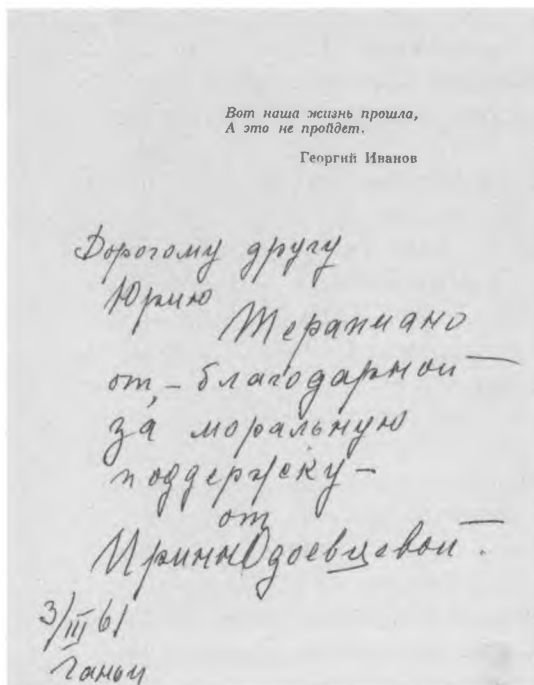 Вот наша жизнь прошла,
А это не пройдет.
Георгий Иванов
Дорогому другу
Юрию
Терапиано
от, – благодарной
за моральную
поддержку –
от
Ирины Одоевцевой.
3/III 61
Ганьи